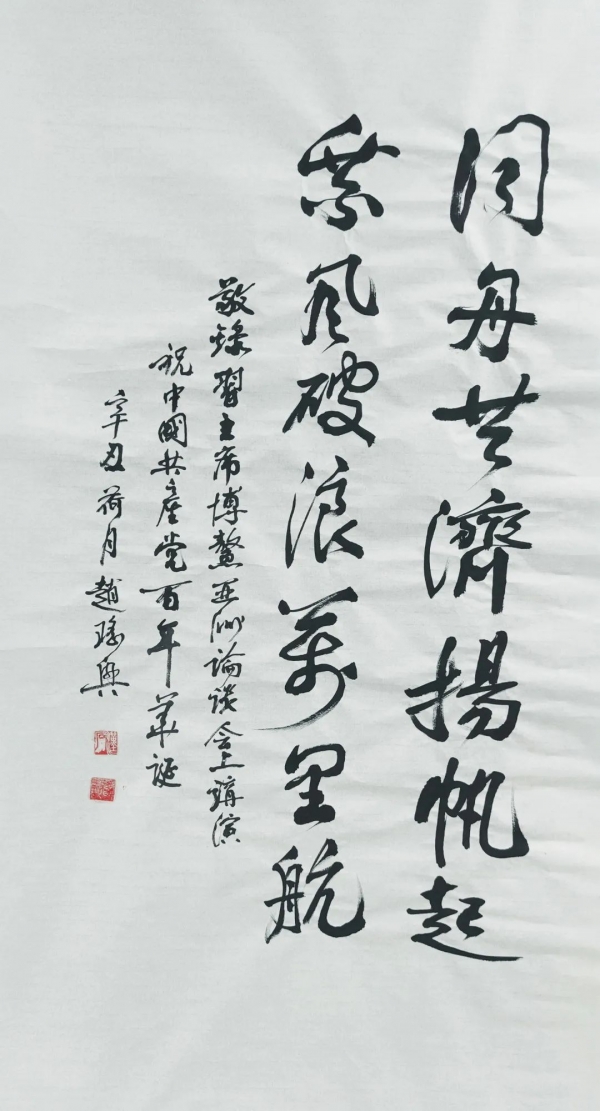 同舟共濟揚帆起
乘风破浪萬里航
敬録習主席博鰲亚洲論談会上講演
祝中國共産党百年華誕
辛丑荷月趙瑤興